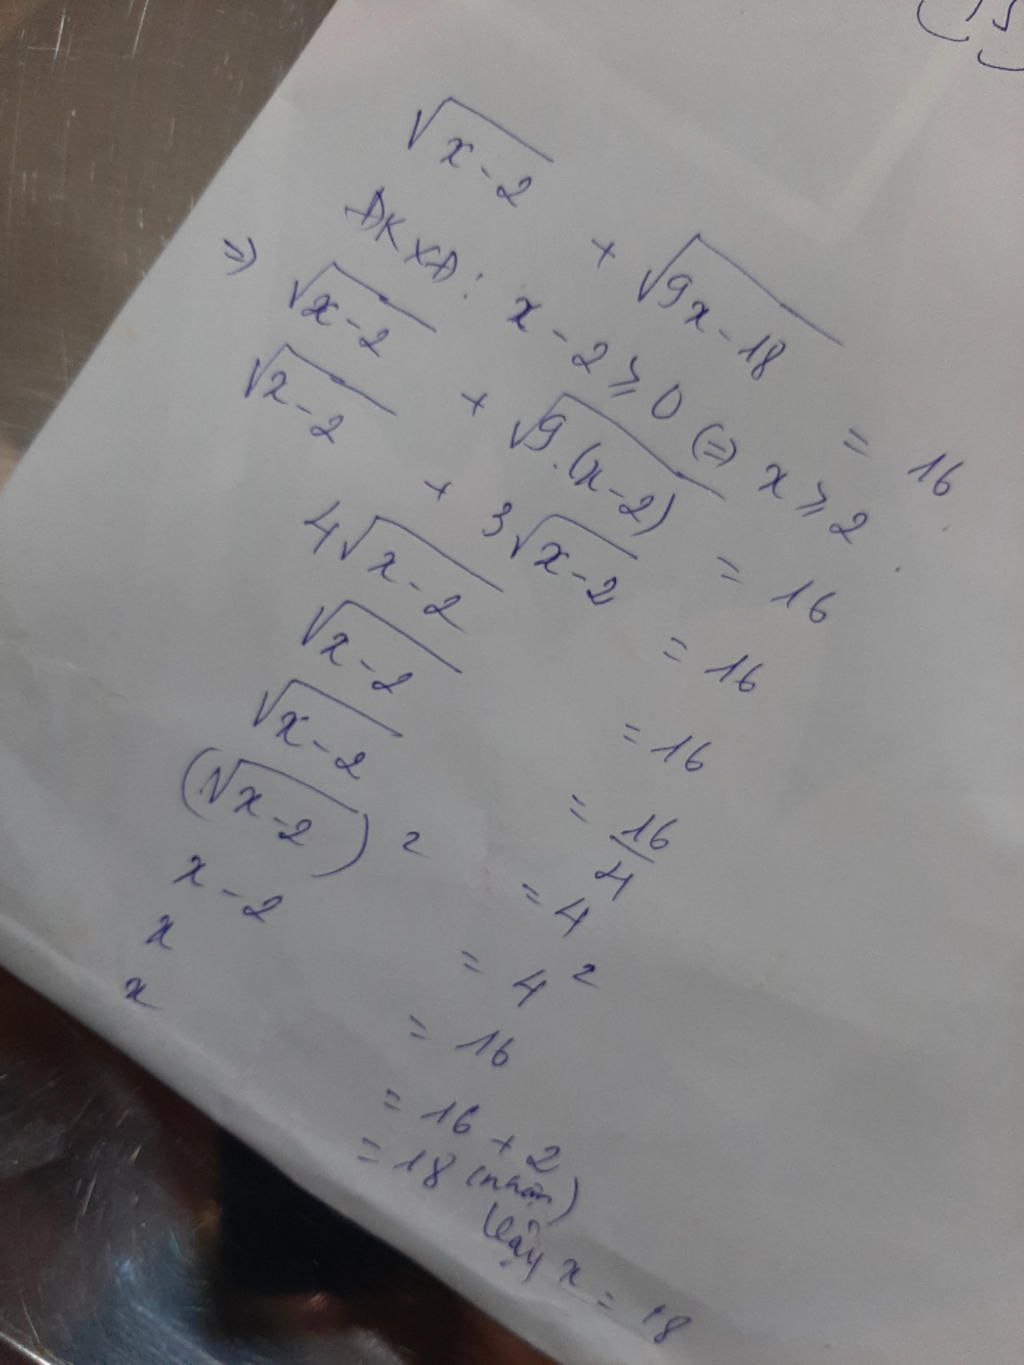 √(x-2) + √(9x-18) = 16
ĐKXĐ: x-2 ⩾ 0 (=) x ⩾ 2
=) √(x-2) + √(9.(x-2)) = 16
√(x-2) + 3√(x-2) = 16
4√(x-2) = 16
√(x-2) = 16/4
√(x-2) = 4
(√(x-2))² = 4²
x-2 = 16
x = 16+2
x = 18 (nhận)
Vậy x = 18